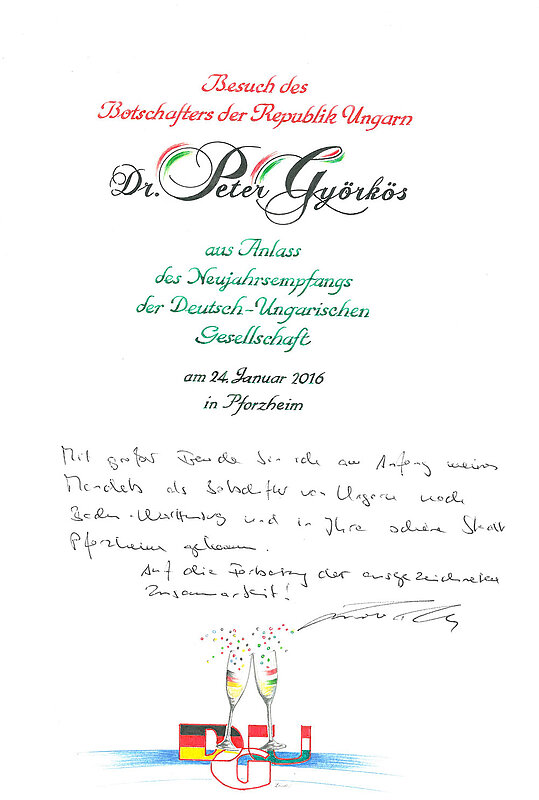 Besuch des
Botschafters der Republik Ungarn
Dr. Peter Györkös
aus Anlass
des Neujahrsempfangs
der Deutsch-Ungarischen
Gesellschaft
am 24. Januar 2016
in Pforzheim
Mit großer Freude bin ich am Anfang meines
Mandats als Botschafter von Ungarn nach
Baden-Württemberg und in Ihre schöne Stadt
Pforzheim gekommen.
Auf die Fortsetzung der ausgezeichneten
Zusammenarbeit!
DUG